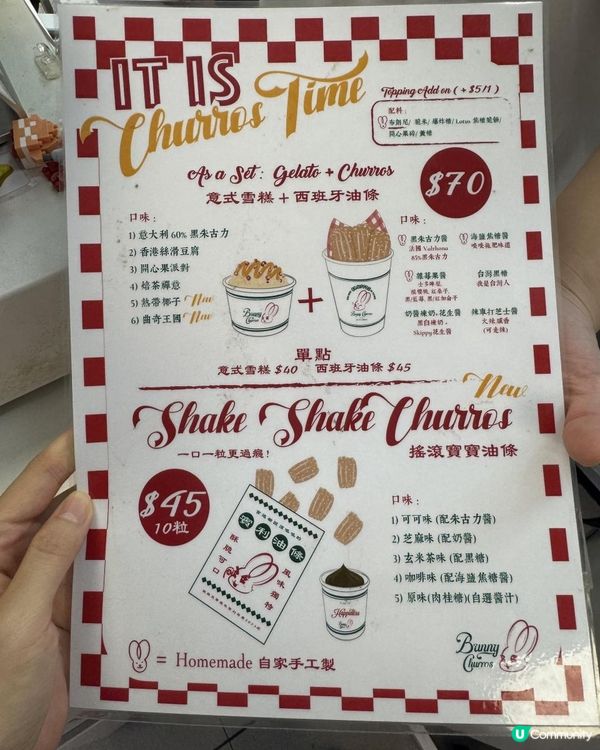 IT IS
Churros Time
Topping Add on ( + $5/1 )
配料:
布朗尼/ 脆米/ 爆炸糖/ Lotus 焦糖脆餅/
開心果碎/ 薯條
As a Set : Gelato + Churros
意式雪糕 + 西班牙油條
$70
口味:
1) 意大利 60% 黑朱古力
2) 香港絲滑豆腐
3) 開心果派對
4) 焙茶禪意
5) 熱帶椰子 New
6) 曲奇王國 New
+
Bunny
Churros
口味:
黑朱古力醬
法國 Valrhona
85%黑朱古力
海鹽焦糖醬
唉唉拖肥味道
雜莓果醬
士多啤梨,
黑/藍莓, 黑/紅加侖子
台灣黑糖
我是台灣人
奶醬煉奶,花生醬
黑白煉奶,
Skippy花生醬
辣車打芝士醬
火辣鹹香
(可走辣)
單點
意式雪糕 $40 西班牙油條 $45
New
Shake Shake Churros
一口一粒更過癮!
搖滾寶寶油條
$45
10粒
寶利油條
酥脆可口
風味獨特
Happiness
口味:
1) 可可味 (配朱古力醬)
2) 芝麻味 (配奶醬)
3) 玄米茶味 (配黑糖)
4) 咖啡味 (配海鹽焦糖醬)
5) 原味(肉桂糖)(自選醬汁)
= Homemade 自家手工製
Bunny
Churros
U Community